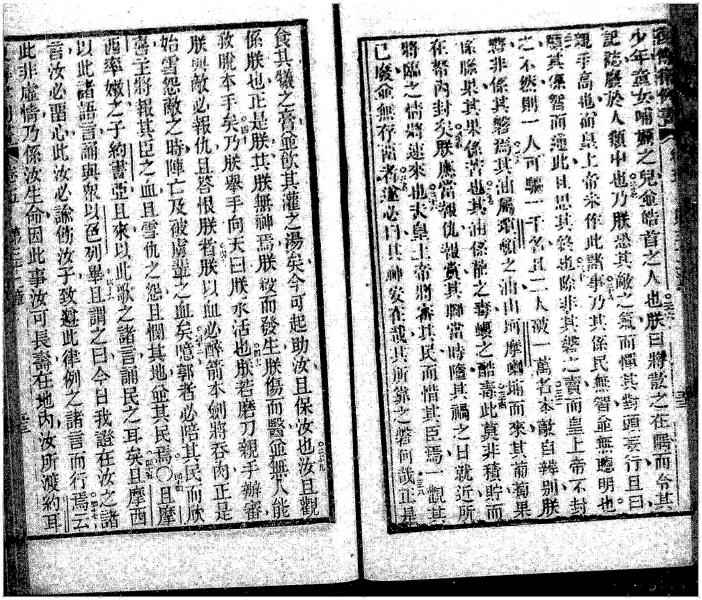 少年童女哺嬭之兒並皓首之人也朕曰將散之在隅而令其
記誌廢於人類中也乃朕恐其敵之氣而憚其對頭妄行且曰
親手高也而皇上帝未作此諸事乃其係民無智並無聰明也
願其係智而達此且思其終也除非其磐之賣而皇上帝不封
之不然則一人可驅一千名且二人破一萬名本敵自辨別朕
磐非係其磐焉其油屬之油由坷摩喇而來其葡萄果
係膽果其果係苦也其油係龍之毒之酷毒此莫非積貯而
在帑內封矣朕應當報仇報賞其腳當時隆其禍之日就近所
將臨之情將速來也夫皇上帝將審其民而惜其臣焉一觀其
已廢並無存留者遂必曰其神安在哉其所靠之磐何哉正是
食其犧之膏並飲其灌之湯矣今可起助汝且保汝也汝且觀
係朕也正是朕其朕無神焉朕殺而發生朕傷而醫並無人能
救脫本手矣乃朕舉手向天曰朕永活也朕若磨刀親手辦審
朕與敵必報仇且答恨朕者朕以血必醉箭本劍將吞肉正是
始雪怨敵之時陣亡及被虜輩之血矣噫郭者必陪其民而欣
喜主將報其臣之血且雪仇之怨且憫其地並其民焉〇且摩西
西率嫩之子約書亞且來以此歌之諸言誦民之耳矣且摩西
以此諸語言誦與眾以色列畢且謂之曰今日我證在汝之諸
言汝必留心此汝必諭飭汝子致遵此律例之諸言而行焉云
此非虛情乃係汝生命因此事汝可長壽在地內汝所渡約耳